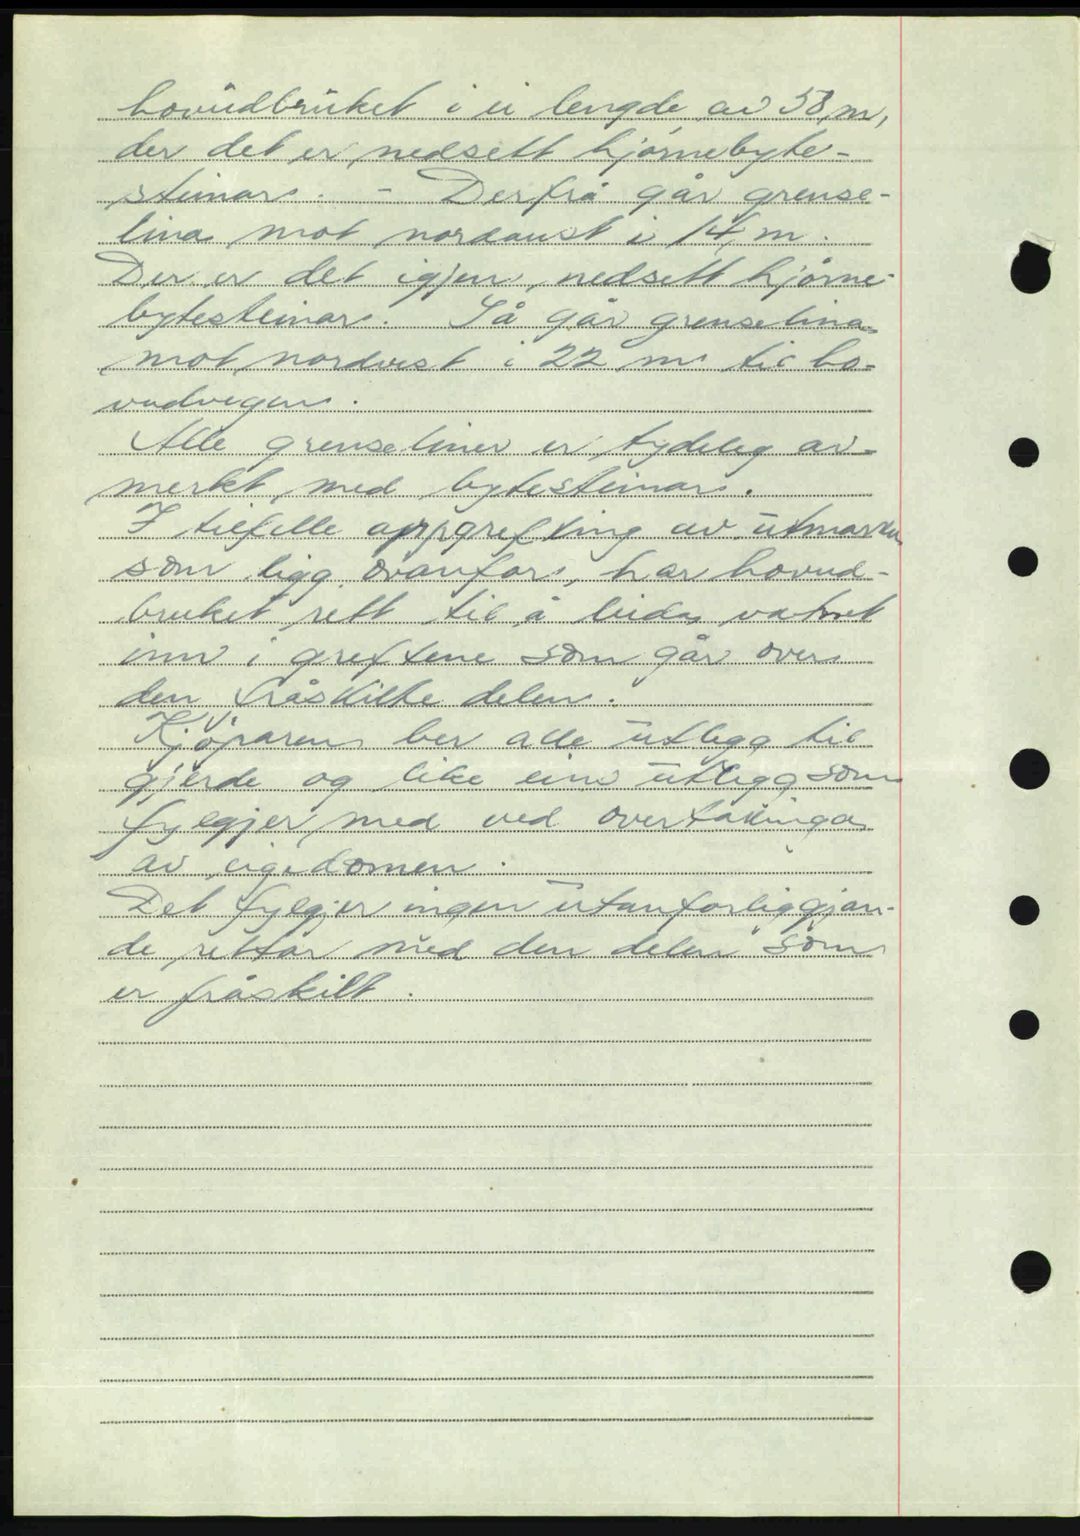 hovudbruket i ei lengde av 58 m,
der det er nedsett hjørnebyte-
steinar. - Derfrå går grense-
lina mot nordaust i 14 m.
Der er det igjen nedsett hjørne-
bytesteinar. Så går grenselina
mot nordvest i 22 m til ho-
vudvegen.
Alle grenseliner er tydeleg av-
merkt med bytesteinar.
I tilfelle oppgrefting av utmarka
som ligg ovanfor, har hovud-
bruket rett til å leida vatnet
inn i greftene som går over
den fråskilte delen.
Kjøparen ber alle utlegg til
gjerde og like eins utlegg som
fylgjer med ved overtakinga
av eigedomen.
Det fylgjer ingen utanforliggjan-
de rettar med den delen som
er fråskilt.